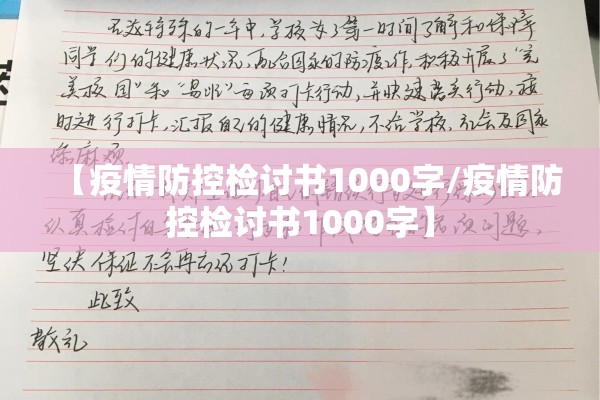 在这特殊的一年中,学校为了第一时间了解和保障
同学们的健康状况,配合国家的防疫工作,积极开展了“完
美校园”和“易班”每项打卡行动,并快速落实行动,按
时进行打卡,汇报自己的健康情况,不给学校,社会及国家
添麻烦
【疫情防控检讨书1000字/疫情防
控检讨书1000字】
认真检讨自
问题,
坚决保证不会再忘记打卡!
此致
敬礼